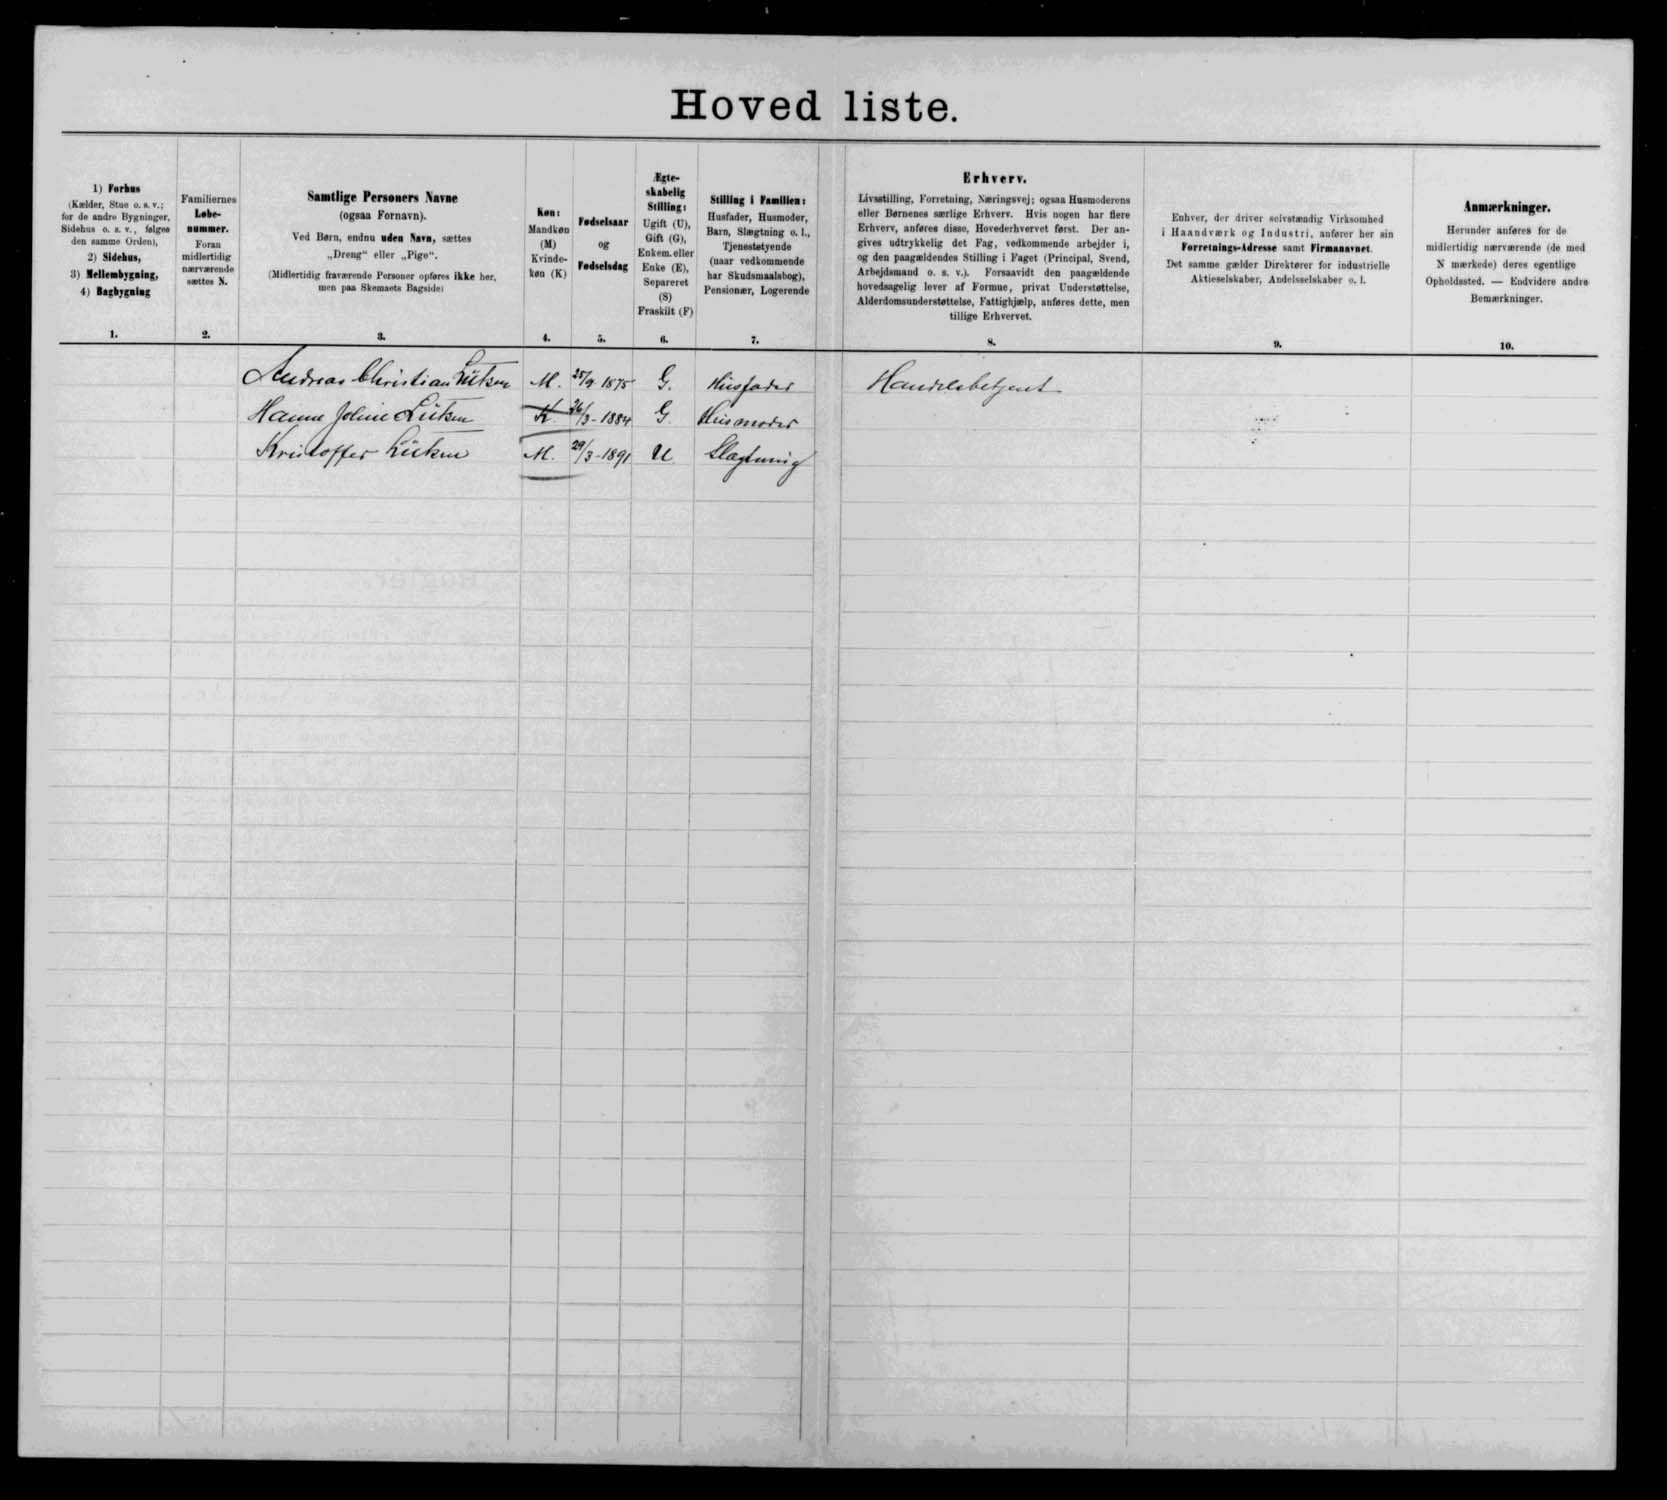 Hovedliste.
1) Forhus
(Kælder, Stue o. s. v.;
for de andre Bygninger,
Sidehus o. s. v., følges
den samme Orden),
2) Sidehus,
3) Mellembygning,
4) Bagbygning
1.
Familiernes
Løbe-
nummer.
Foran
midlertidig
nærværende
sættes N.
2.
Samtlige Personers Navne
(ogsaa Fornavn).
Ved Børn, endnu uden Navn, sættes
„Dreng“ eller „Pige“.
(Midlertidig fraværende Personer opføres ikke her,
men paa Skemaets Bagside)
3.
Køn:
Mandkøn
(M)
Kvinde-
køn (K)
4.
Fødselsaar
og
Fødselsdag
5.
Ægte-
skabelig
Stilling:
Ugift (U),
Gift (G),
Enkem. eller
Enke (E),
Separeret
(S)
Fraskilt (F)
6.
Stilling i Familien:
Husfader, Husmoder,
Barn, Slægtning o. l.,
Tjenestetyende
(naar vedkommende
har Skudsmaalsbog),
Pensionær, Logerende
7.
Erhverv.
Livsstilling, Forretning, Næringsvej; ogsaa Husmoderens
eller Børnenes særlige Erhverv. Hvis nogen har flere
Erhverv, anføres disse, Hovederhvervet først. Der an-
gives udtrykkelig det Fag, vedkommende arbejder i,
og den paagældendes Stilling i Faget (Principal, Svend,
Arbejdsmand o. s. v.). Forsaavidt den paagældende
hovedsagelig lever af Formue, privat Understøttelse,
Alderdomsunderstøttelse, Fattighjælp, anføres dette, men
tillige Erhvervet.
8.
Enhver, der driver selvstændig Virksomhed
i Haandværk og Industri, anfører her sin
Forretnings-Adresse samt Firmanavnet.
Det samme gælder Direktører for industrielle
Aktieselskaber, Andelsselskaber o. l.
9.
Anmærkninger.
Herunder anføres for de
midlertidig nærværende (de med
N mærkede) deres egentlige
Opholdssted. — Endvidere andre
Bemærkninger.
10.
Andreas Christian Lütken M. 25/9 1875 G. Husfader Handelsbetjent
Hanne Joline Lütken K. 26/3-1884 G. Husmoder
Kristoffer Lütken M. 29/3-1891 U Slægtning